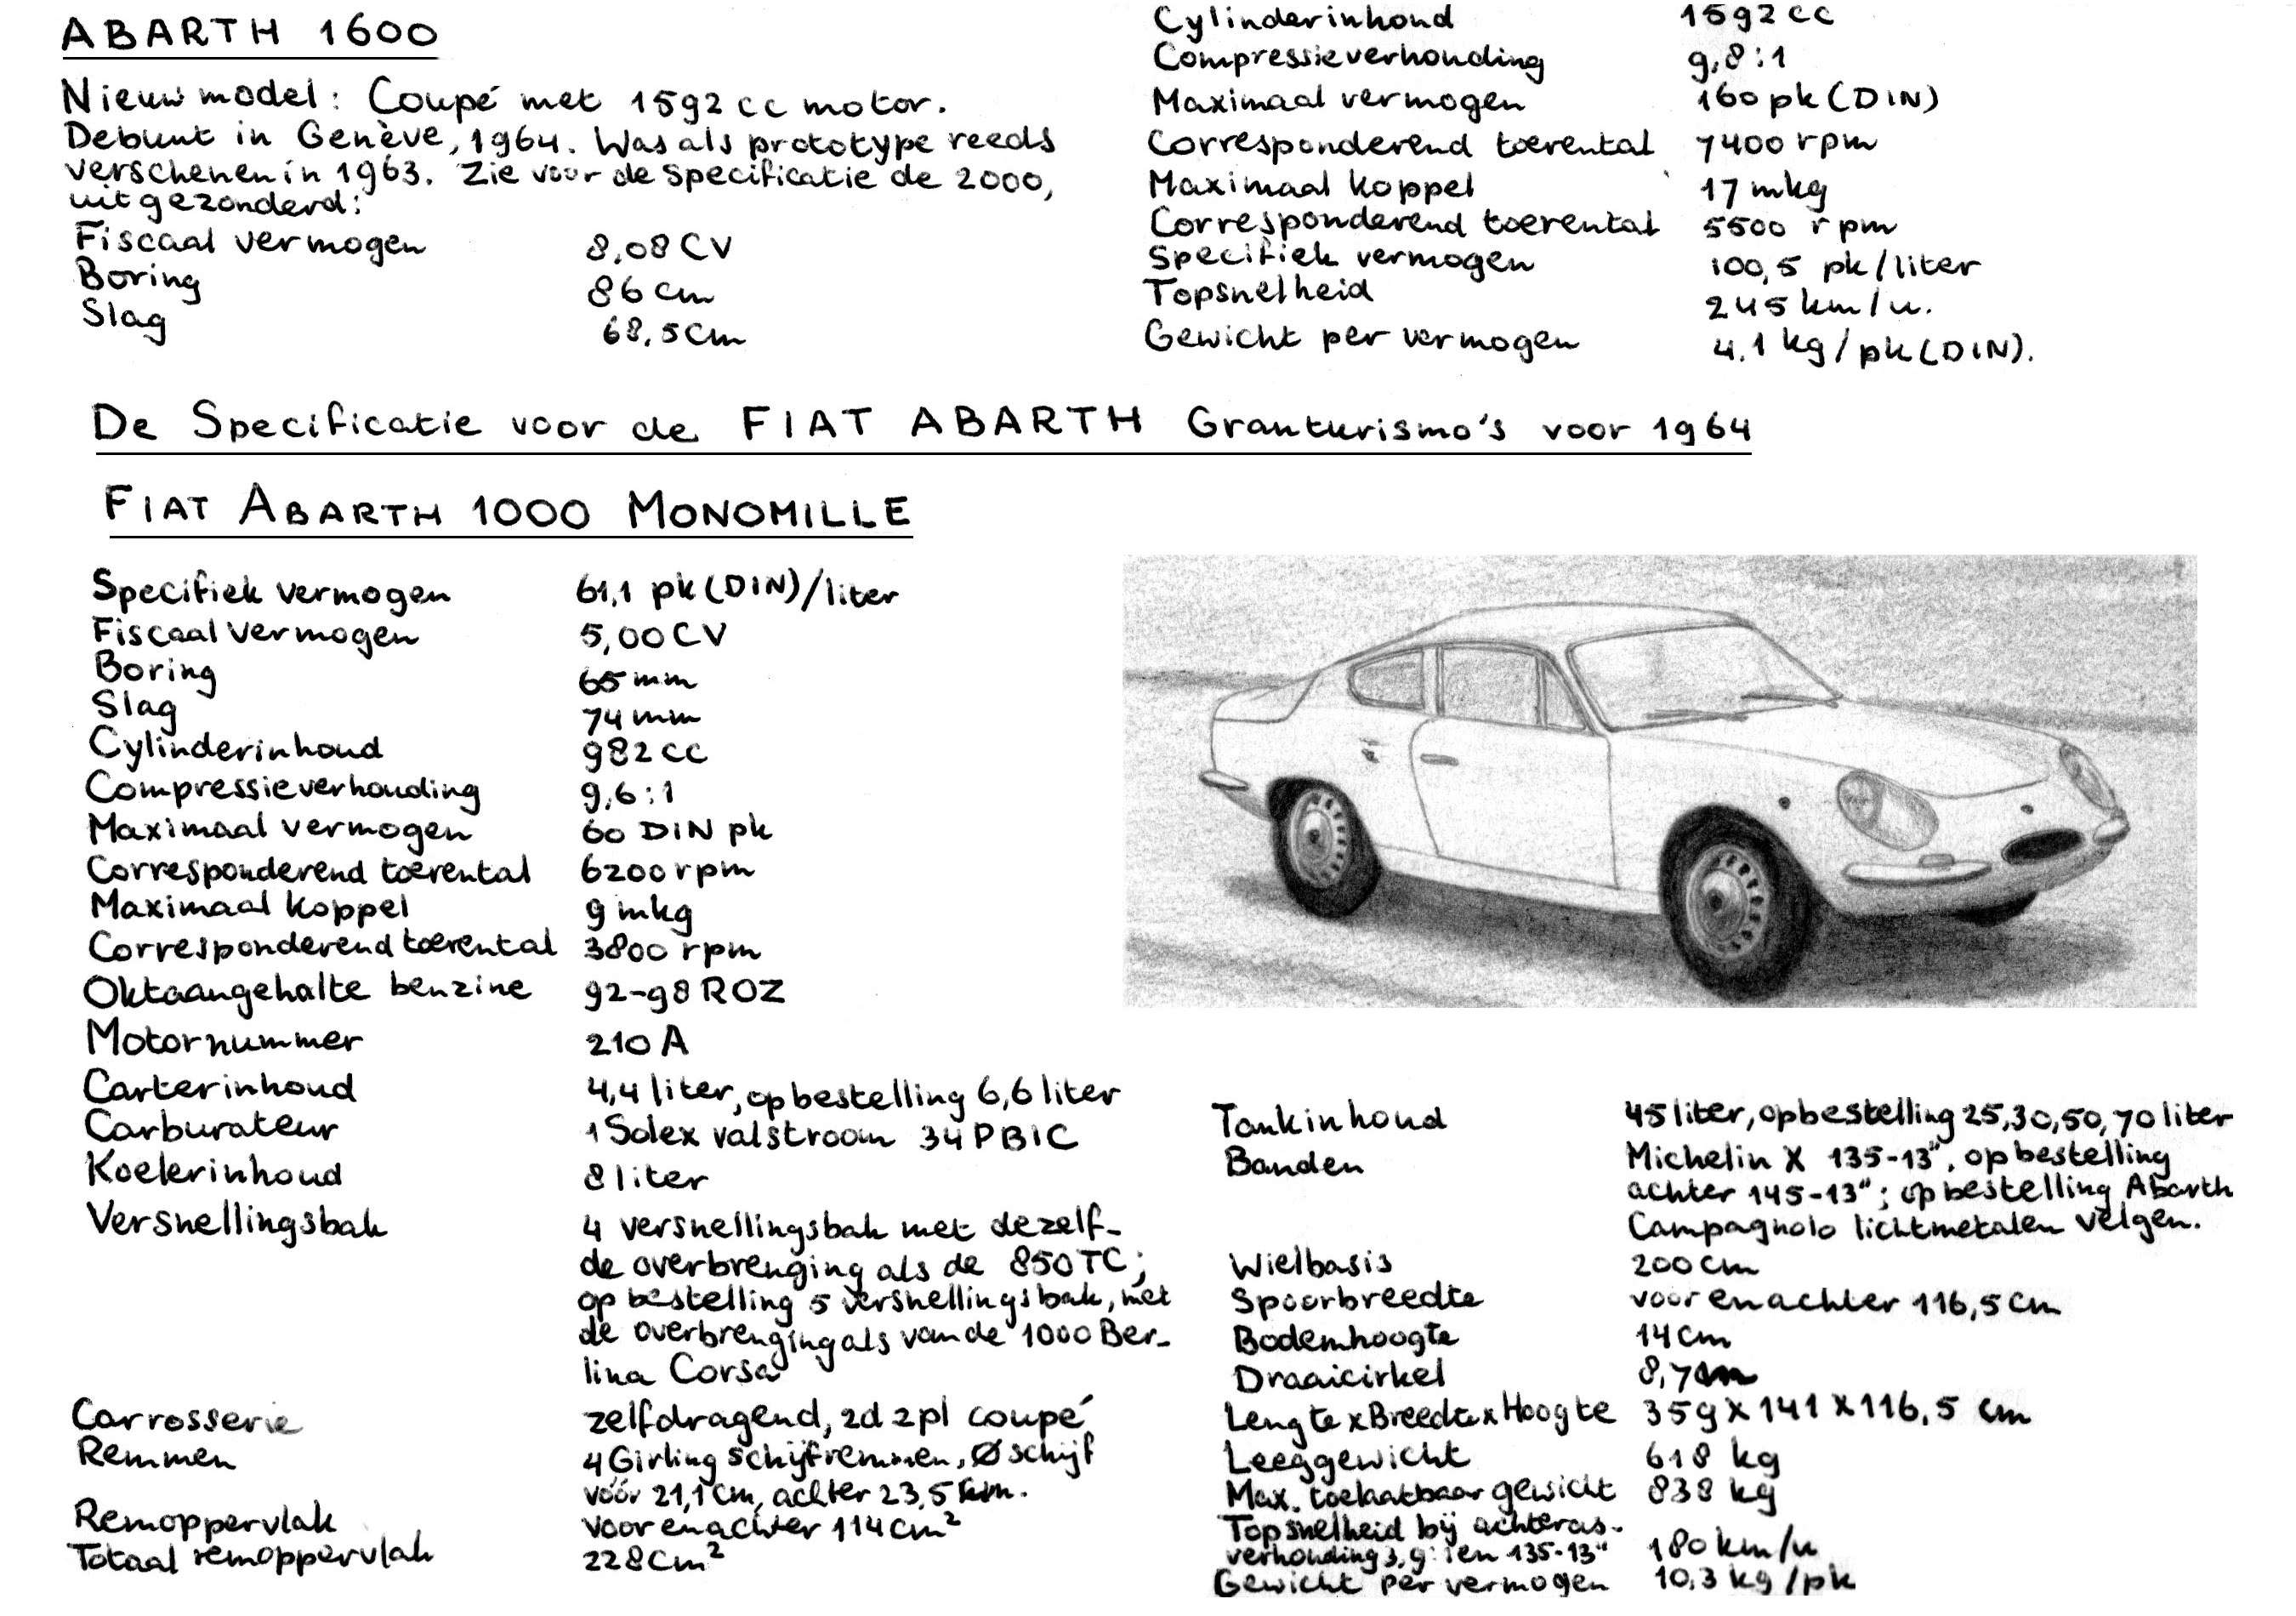 ABARTH 1600
Nieuw model: Coupé met 1592 cc motor.
Debuut in Genève, 1964. Was als prototype reeds
verschenen in 1963. Zie voor de specificatie de 2000,
uitgezonderd:
Fiscaal vermogen 8,08 CV
Boring 86 cm
Slag 68,5 cm
Cylinderinhoud 1592 cc
Compressieverhouding 9,8:1
Maximaal vermogen 160 pk (DIN)
Corresponderend toerental 7400 rpm
Maximaal koppel 17 mkg
Corresponderend toerental 5500 rpm
Specifiek vermogen 100,5 pk/liter
Topsnelheid 245 km/u.
Gewicht per vermogen 4,1 kg/pk (DIN).
De Specificatie voor de FIAT ABARTH Granturismo's voor 1964
FIAT ABARTH 1000 MONOMILLE
Specifiek vermogen 61,1 pk (DIN)/liter
Fiscaal vermogen 5,00 CV
Boring 65 mm
Slag 74 mm
Cylinderinhoud 982 cc
Compressieverhouding 9,6:1
Maximaal vermogen 60 DIN pk
Corresponderend toerental 6200 rpm
Maximaal koppel 9 mkg
Corresponderend toerental 3800 rpm
Oktaangehalte benzine 92-98 ROZ
Motornummer 210 A
Carterinhoud 4,4 liter, op bestelling 6,6 liter
Carburateur 1 Solex valstroom 34 PBIC
Koelerinhoud 8 liter
Versnellingsbak 4 versnellingsbak met dezelf-
de overbrenging als de 850 TC;
op bestelling 5 versnellingsbak, met
de overbrenging als van de 1000 Ber-
lina Corsa
Carrosserie zelfdragend, 2d 2pl coupé
Remmen 4 Girling schijfremmen, Ø schijf
vóór 21,1 cm, achter 23,5 cm.
Remoppervlak voor en achter 114 cm²
Totaal remoppervlak 228 cm²
Tankinhoud 45 liter, op bestelling 25, 30, 50, 70 liter
Banden Michelin X 135-13", op bestelling
achter 145-13"; op bestelling Abarth
Campagnolo lichtmetalen velgen.
Wielbasis 200 cm
Spoorbreedte voor en achter 116,5 cm
Bodemhoogte 14 cm
Draaicirkel 8,7 m
Lengte x Breedte x Hoogte 359 x 141 x 116,5 cm
Leeggewicht 618 kg
Max. toelaatbaar gewicht 838 kg
Topsnelheid bij achteras-
verhouding 3,9:1 en 135-13" 180 km/u
Gewicht per vermogen 10,3 kg/pk